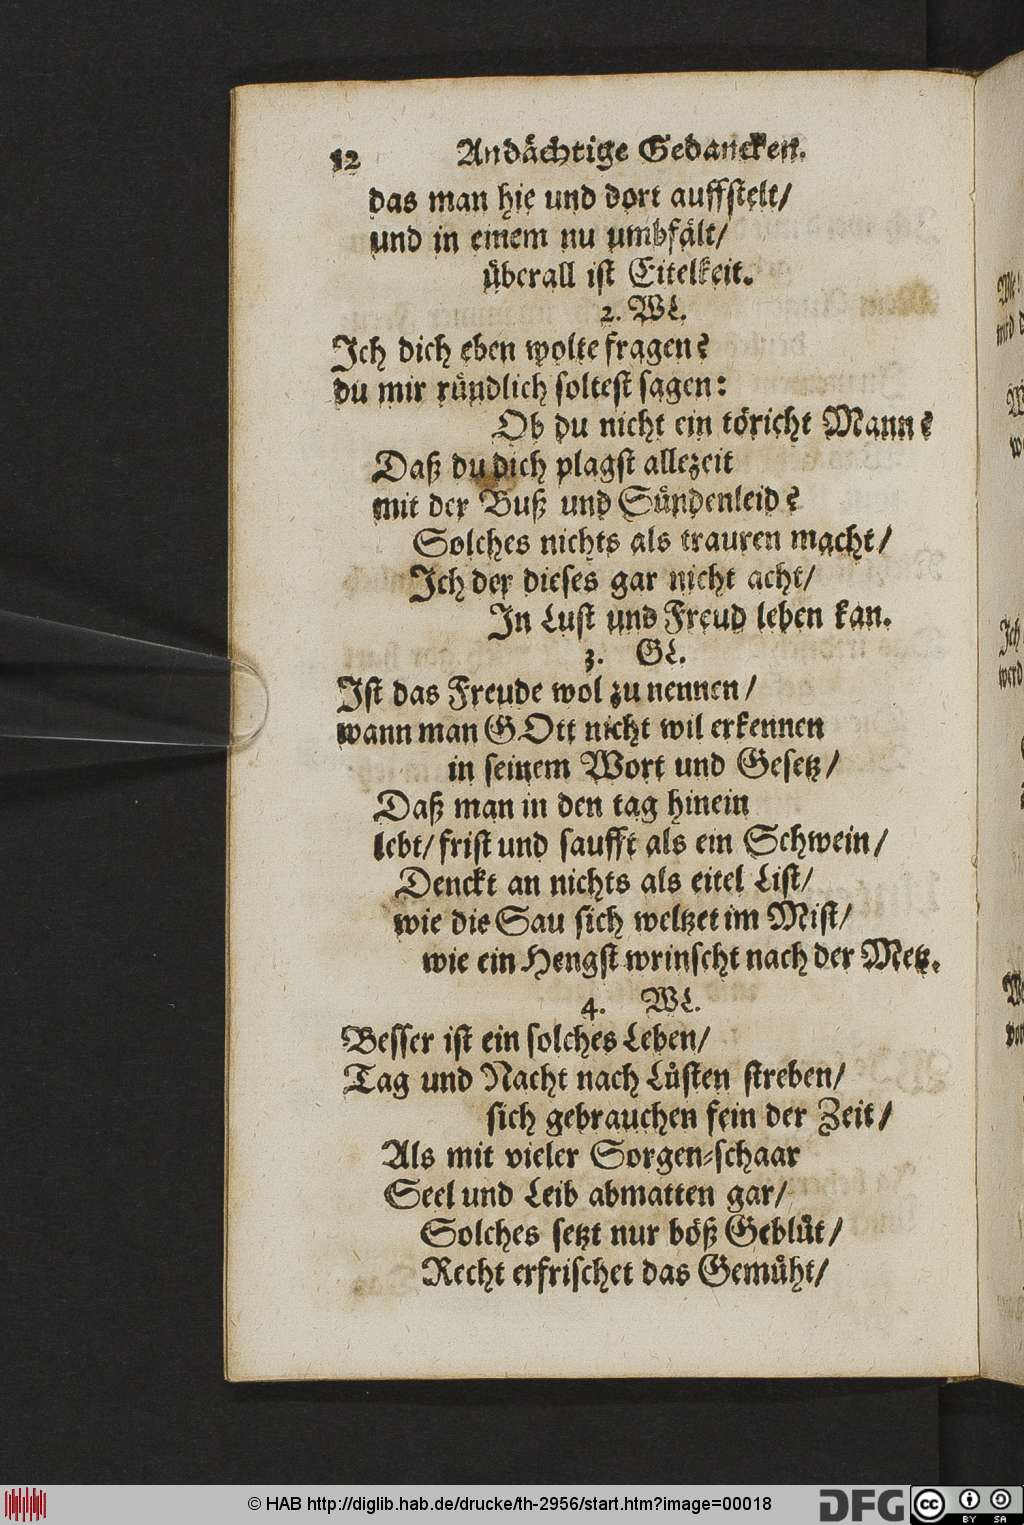 12 Andächtige Gedancken.
das man hie und dort auffstelt/
und in einem nu umbfält/
überall ist Eitelkeit.
2. WL.
Ich dich eben wolte fragen?
du mir ründlich soltest sagen:
Ob du nicht ein töricht Mann?
Daß du dich plagst allezeit
mit der Buß und Sündenleid?
Solches nichts als trauren macht/
Ich der dieses gar nicht acht/
In Lust und Freud leben kan.
3. GL.
Ist das Freude wol zu nennen/
wann man GOtt nicht wil erkennen
in seinem Wort und Gesetz/
Daß man in den tag hinein
lebt/ frist und saufft als ein Schwein/
Denckt an nichts als eitel List/
wie die Sau sich weltzet im Mist/
wie ein Hengst wrinscht nach der Metz.
4. WL.
Besser ist ein solches Leben/
Tag und Nacht nach Lüsten streben/
sich gebrauchen fein der Zeit/
Als mit vieler Sorgen-schaar
Seel und Leib abmatten gar/
Solches setzt nur böß Geblüt/
Recht erfrischet das Gemüht/
© HAB http://diglib.hab.de/drucke/th-2956/start.htm?image=00018
DFG
cc BY SA